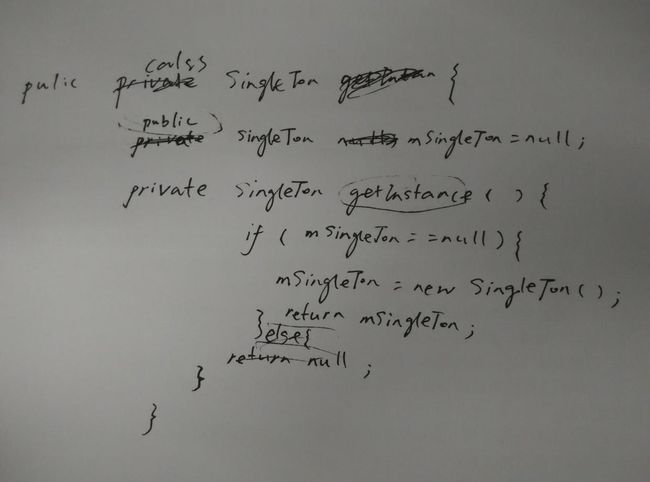 pulic calss SingleTon {
public SingleTon mSingleTon = null;
private SingleTon getInstance ( ) {
if ( mSingleTon = = null ) {
mSingleTon = new SingleTon ( ) ;
return mSingleTon ;
} else {
return null ;
}
}